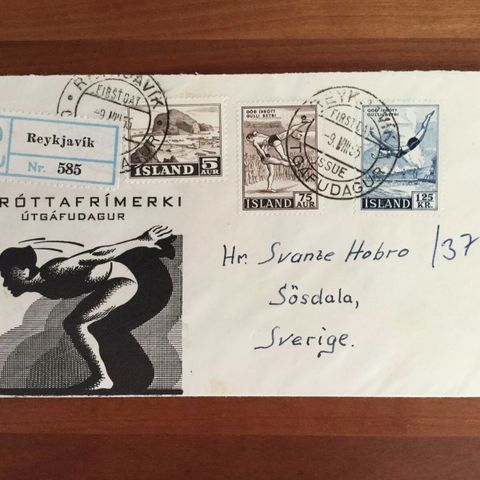 Reykjavík
Nr. 585
REYKJAVÍK
FIRST DAY
-9.VIII.55
ÍSLAND 5 AUR
GÓÐ ÍÞRÓTT
GULLI BETRI
ÍSLAND 75 AUR
REYKJAVÍK
FIRST DAY
-9.VIII.55
ISSUE
ÚTGÁFUDAGUR
GÓÐ ÍÞRÓTT
GULLI BETRI
ÍSLAND 1.25 KR.
RÓTTAFRÍMERKI
ÚTGÁFUDAGUR
Hr. Svante Hobro /37
Sösdala,
Sverige.